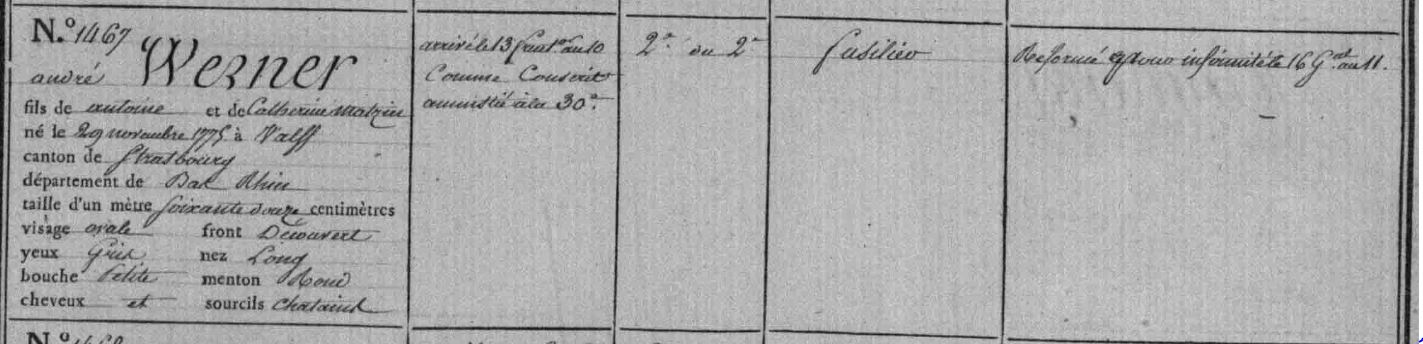 N.º 1467
Werner
andré
fils de antoine et de Catherine Matzin
né le 29 novembre 1775 à Valff
canton de Strasbourg
département de Bas Rhin
taille d'un mètre soixante douze centimètres
visage ovale front Découvert
yeux Gris nez Long
bouche Petite menton Rond
cheveux et sourcils chatains
arrivé le 13 an 10
Comme Conscrit
amnistié à la 30e.
2e du 2e
fusilier
Reformé pour infirmité le 16 Gal an 11.
N.º